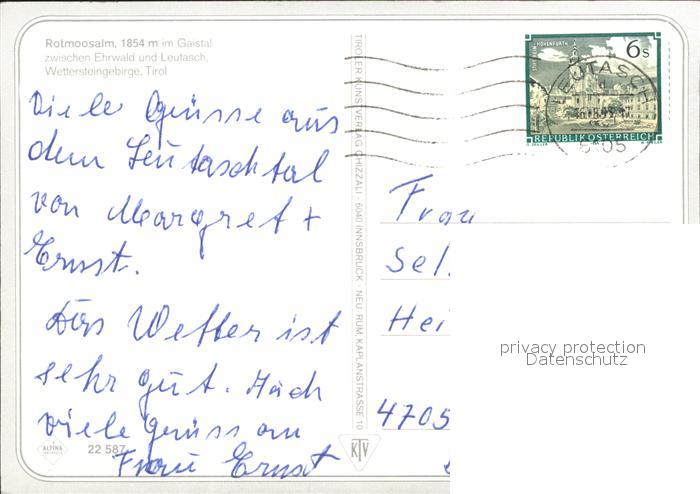 Rotmoosalm, 1854 m im Gaistal
zwischen Ehrwald und Leutasch,
Wettersteingebirge, Tirol
Viele Grüsse aus
dem Leutaschtal
von Margret +
Ernst.
Das Wetter ist
sehr gut. Mach
viele grüss an
Frau Ernst
ALPINA
22 587
TIROLER KUNSTVERLAG CHIZZALI · 6040 INNSBRUCK · NEU RUM, KAPLANSTRASSE 10
KTV
STIFT HOHENFURTH
6 S
REPUBLIK ÖSTERREICH
LEUTASCH
6105
Frau
Sel.
Hei
4705
privacy protection
Datenschutz